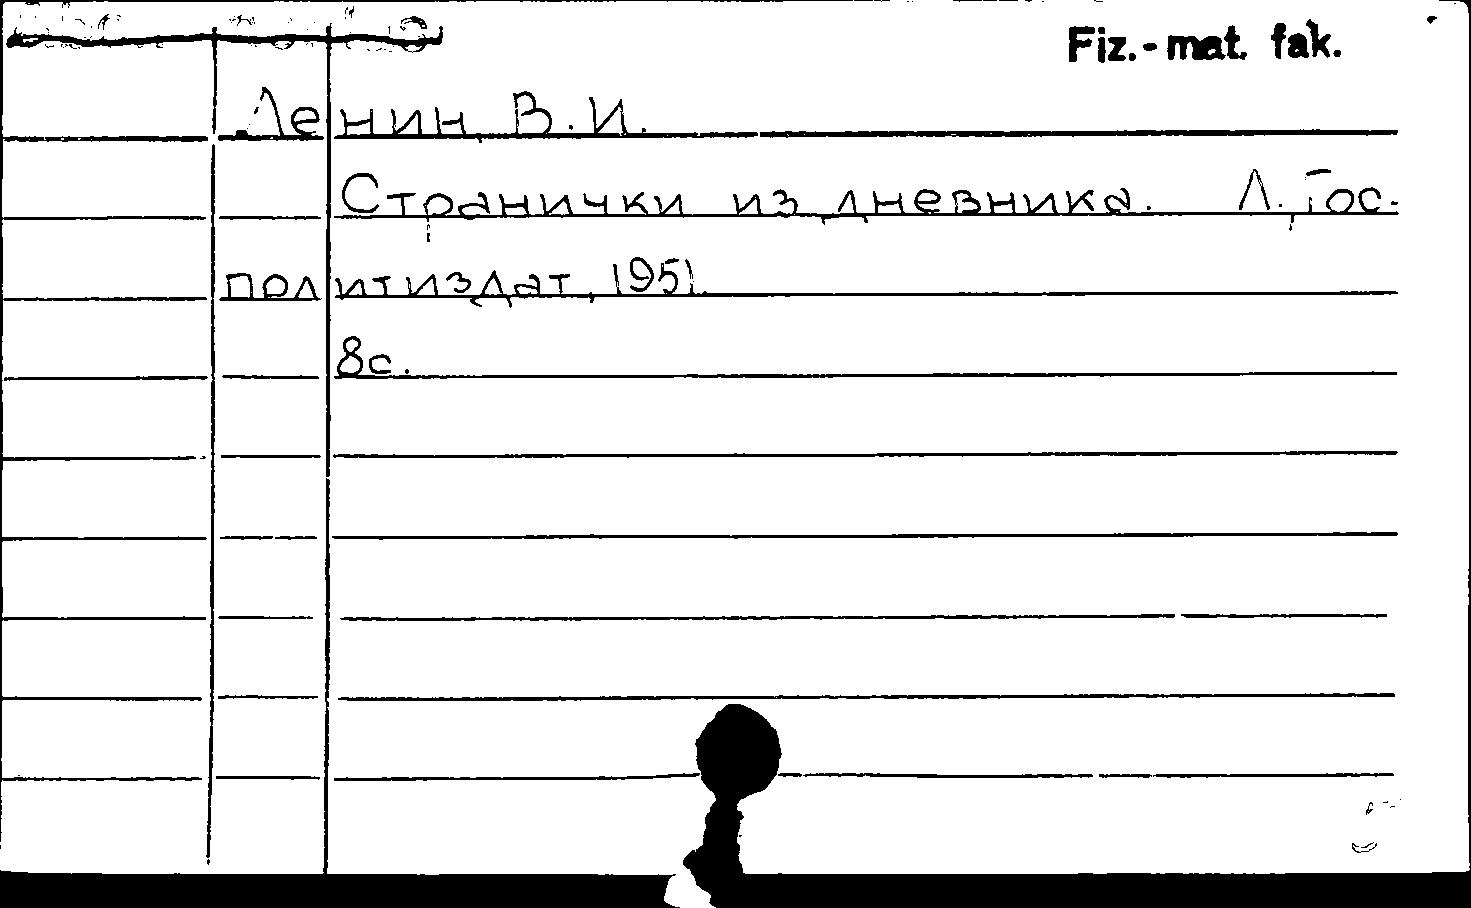 Fiz.-mat. fak.
Ленин, В.И.
Странички из дневника. Л., Гос-
политиздат, 1951.
8с.